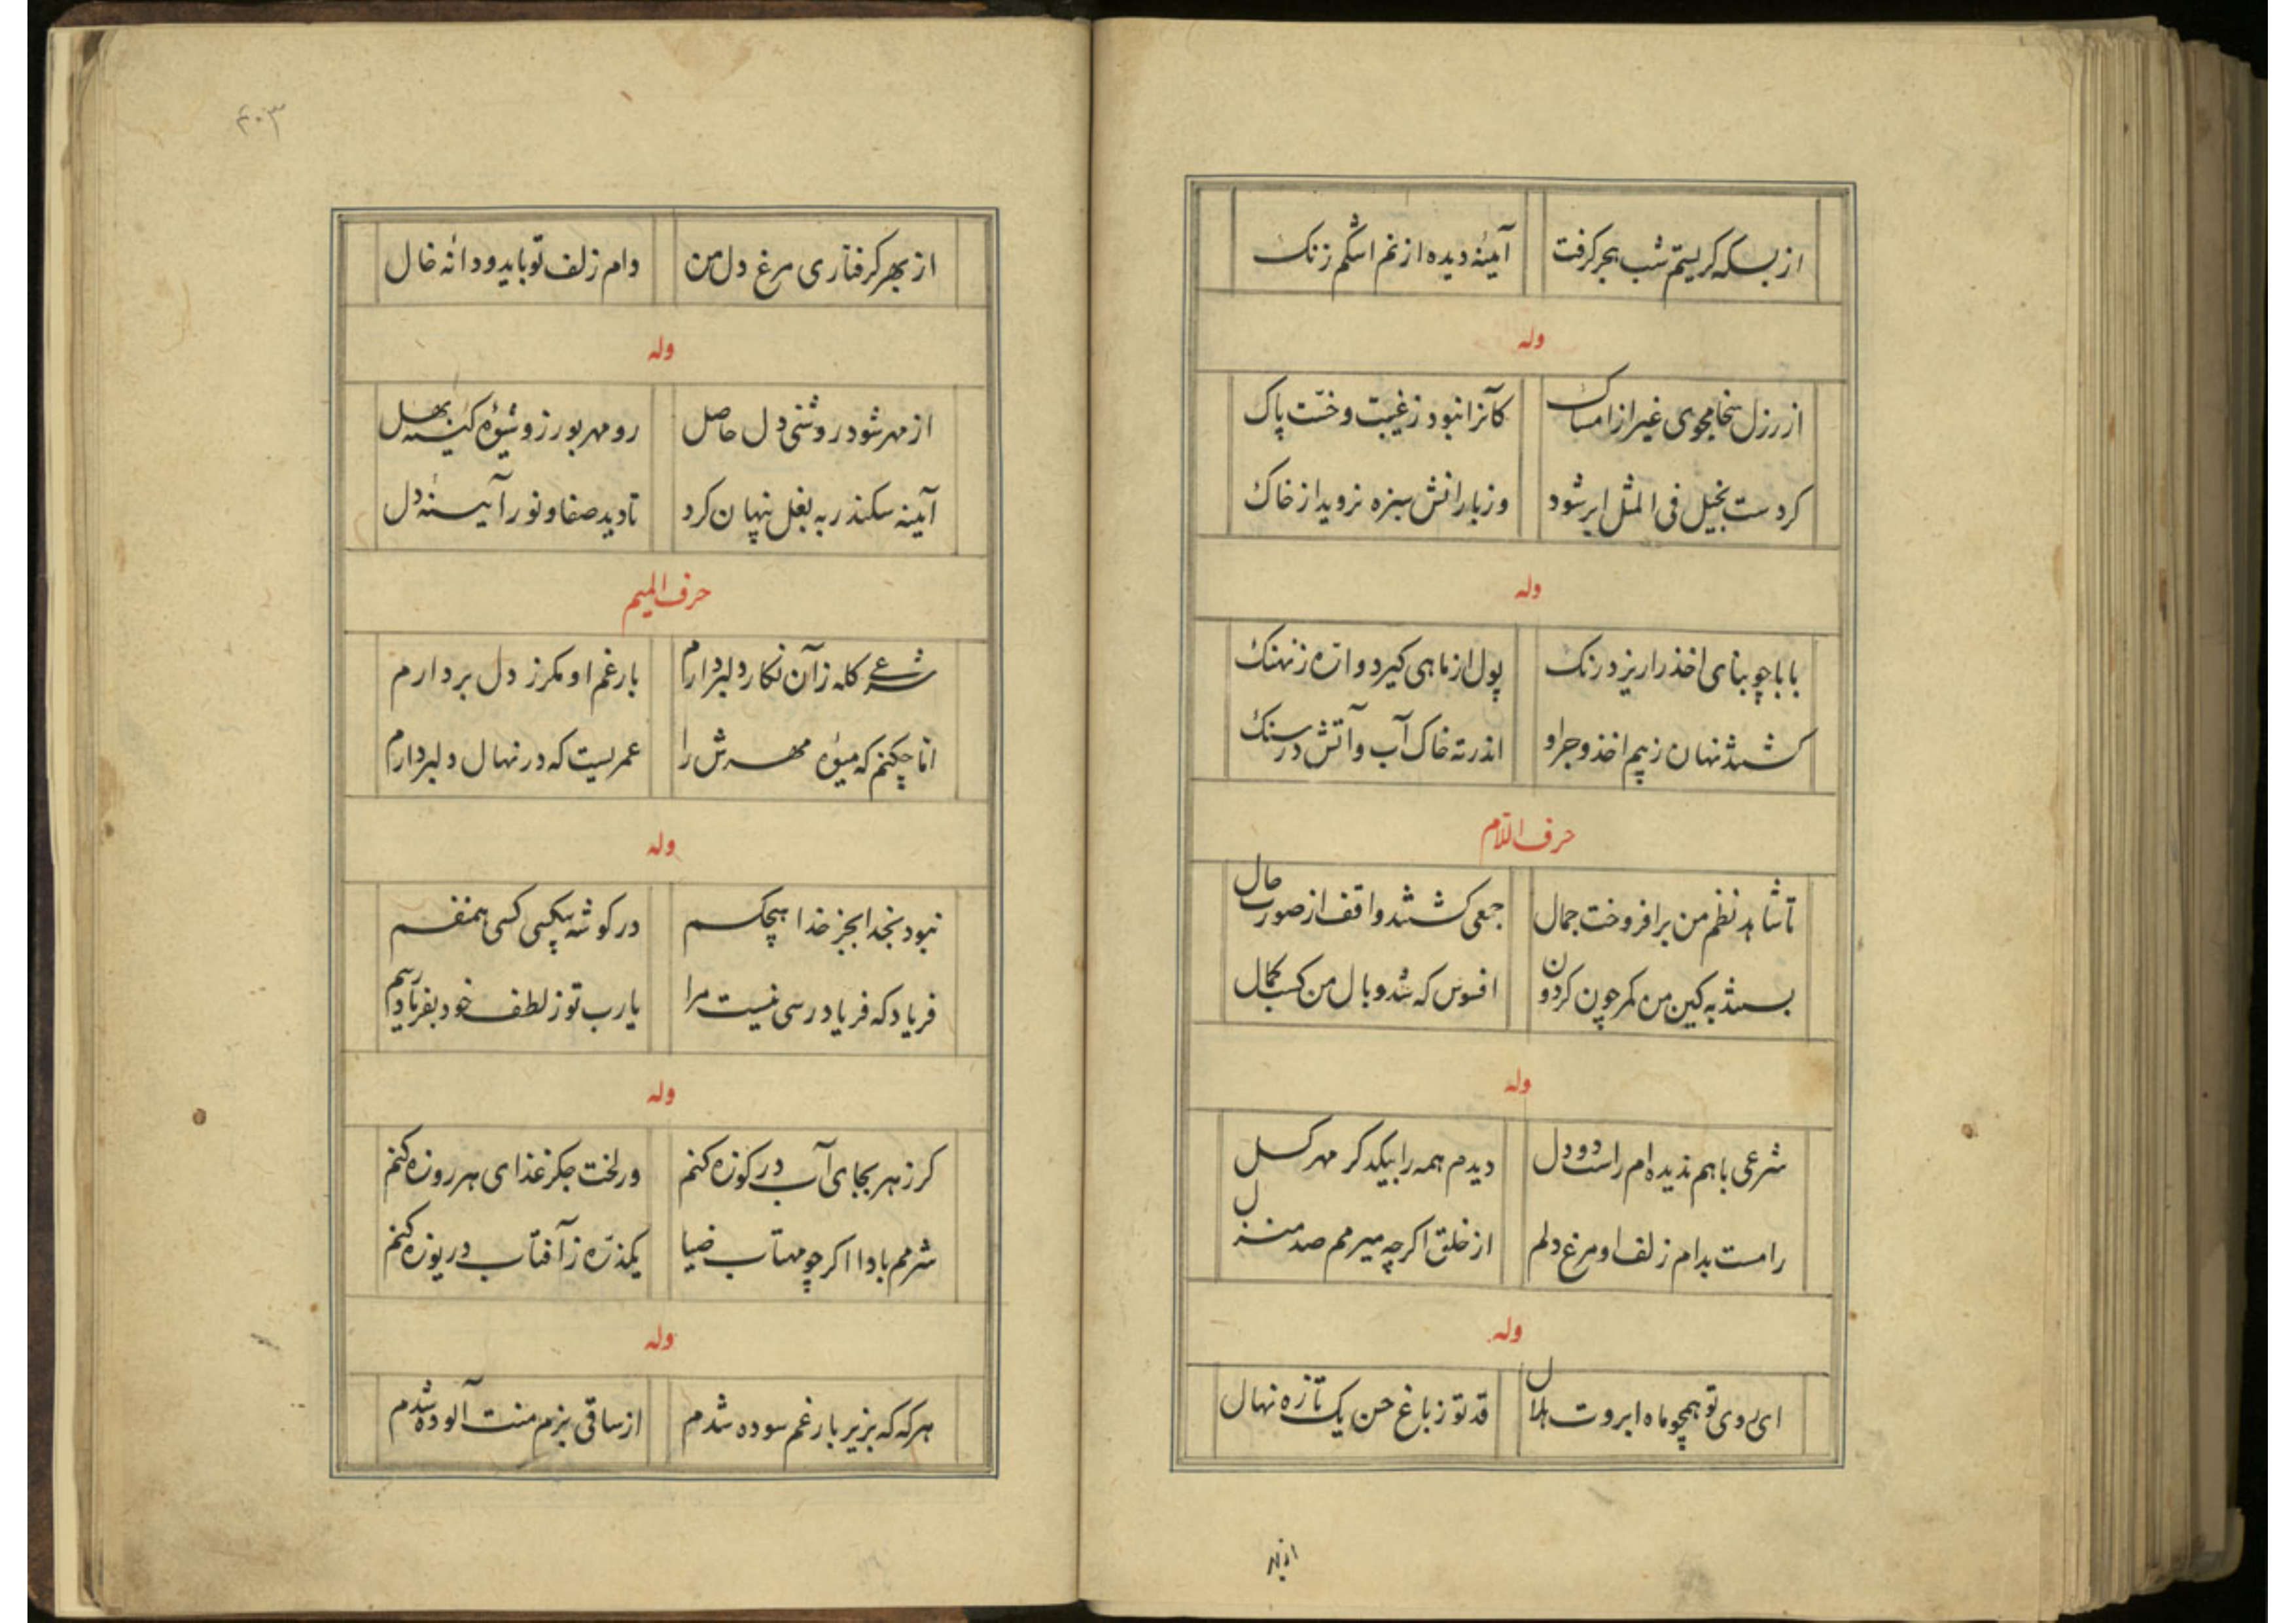 از بسکه کریستم شب هجر کرفت آینهٔ دیده از نم اشکم زنک
وله
از رزل سخا مجوی غیر از امساک کآنرا نبود زغیبت وخسّت پاک
کر دست بخیل فی المثل ابر شود وز بارانش سبزه نروید از خاک
وله
بابا چو بنای اخذ را ریزد رنک پول از ماهی کیرد و ازه زنهنک
کشتند نهان زبیم اخذ وجر او اندر ته خاک آب و آتش در سنک
حرف اللام
تا شاهد نظم من برافروخت جمال جمعی کشتند واقف از صورت حال
بستند به کین من کمر چون کردون افسوس که شد وبال من کسب کمال
وله
شرعی باهم ندیده ام راست دو دل دیدم همه را بیکدکر مهر کسل
رامست بدام زلف او مرغ دلم از خلق اکرچه میرمم صد منزل
وله
ای روی تو همچو ماه ابروت هلال قد تو ز باغ حسن یک تازه نهال
از بهر
۴۰۳
از بهر کرفتاری مرغ دل من دام زلف تو باید و دانه خال
وله
از مهر شود روشنی دل حاصل رو مهر بورز و شیوهٔ کینه بهل
آینه سکندر به بغل پنهان کرد تا دید صفا و نور آیینهٔ دل
حرف المیم
شرعی کله زآن نکار دلبر دارم بار غم او مکر ز دل بردارم
امّا چکنم که میوهٔ مهرش را عمریست که در نهال دل بر دارم
وله
نبود بخدا بجز خدا هیچکسم در کوشه بیکسی کسی همنفسم
فریاد که فریادرسی نیست مرا یارب تو ز لطف خود بفریاد رسم
وله
کر زهر بجای آب در کوزه کنم ور لخت جکر غذای هر روزه کنم
شرمم بادا اکر چو مهتاب ضیا یکذرّه ز آفتاب دریوزه کنم
وله
هرکه که بزیر بار غم سوده شدم از ساقی بزم منت آلوده شدم